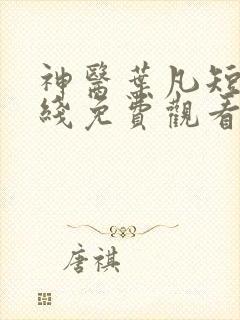 神醫葉凡短
綫免費觀看
唐祺